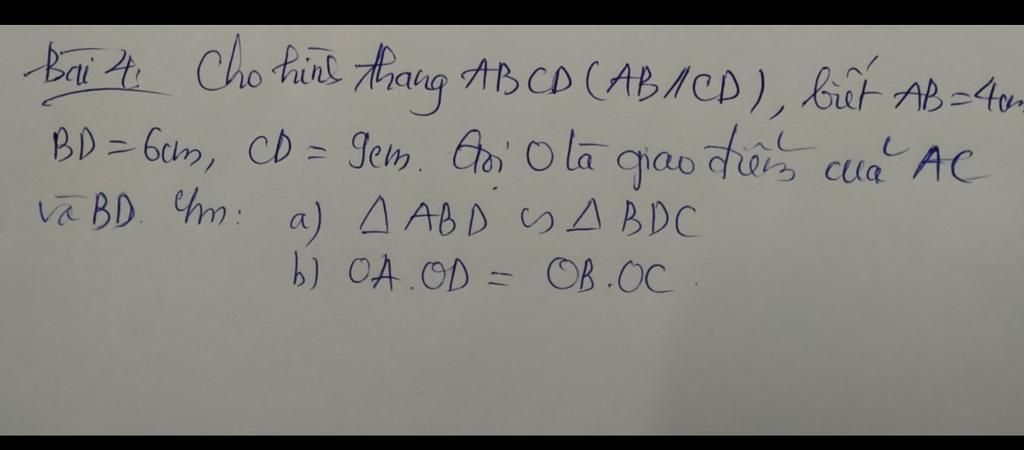 Bài 4: Cho hình thang ABCD (AB//CD), biết AB = 4cm
BD = 6cm, CD = 9cm. Gọi O là giao điểm của AC
và BD. C/m: a) Δ ABD ∽ Δ BDC
b) OA.OD = OB.OC.